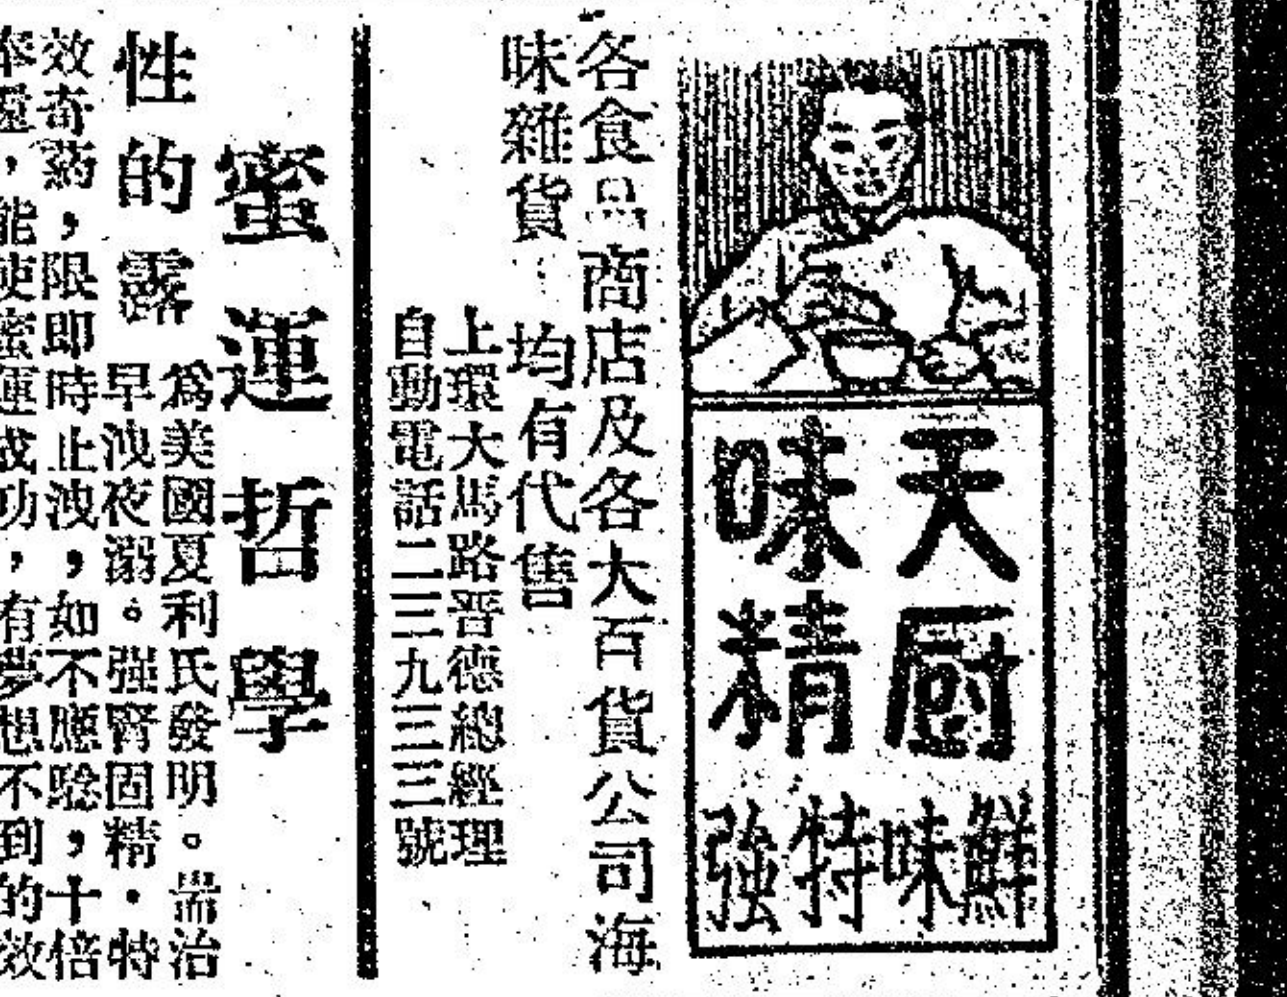 天厨
味精
鮮味特強
各食品商店及各大百貨公司海
味雜貨 均有代售
上環大馬路晋德總經理
自動電話二三九三三號
蜜運哲學
性的露
爲美國夏利氏發明。耑治
早洩夜溺。强腎固精·特
效奇葯，限即時止洩，如不應騐，十倍
奉還，能使蜜運成功，有夢想不到的效